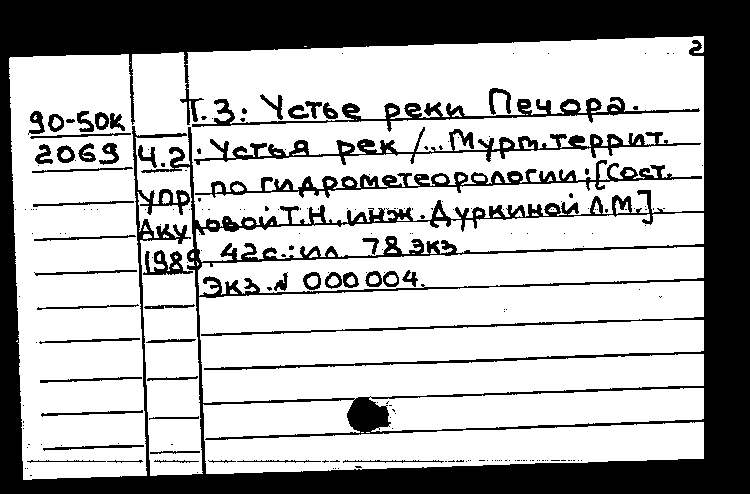 2
Т.3: Устье реки Печора.
90-50к
2069 Ч.2: Устья рек /... Мурм. террит.
упр. по гидрометеорологии; [Сост.
Акуловой Т.Н., инж. Дуркиной Л.М.].
1989. 42с.: ил. 78 экз.
Экз. № 000004.